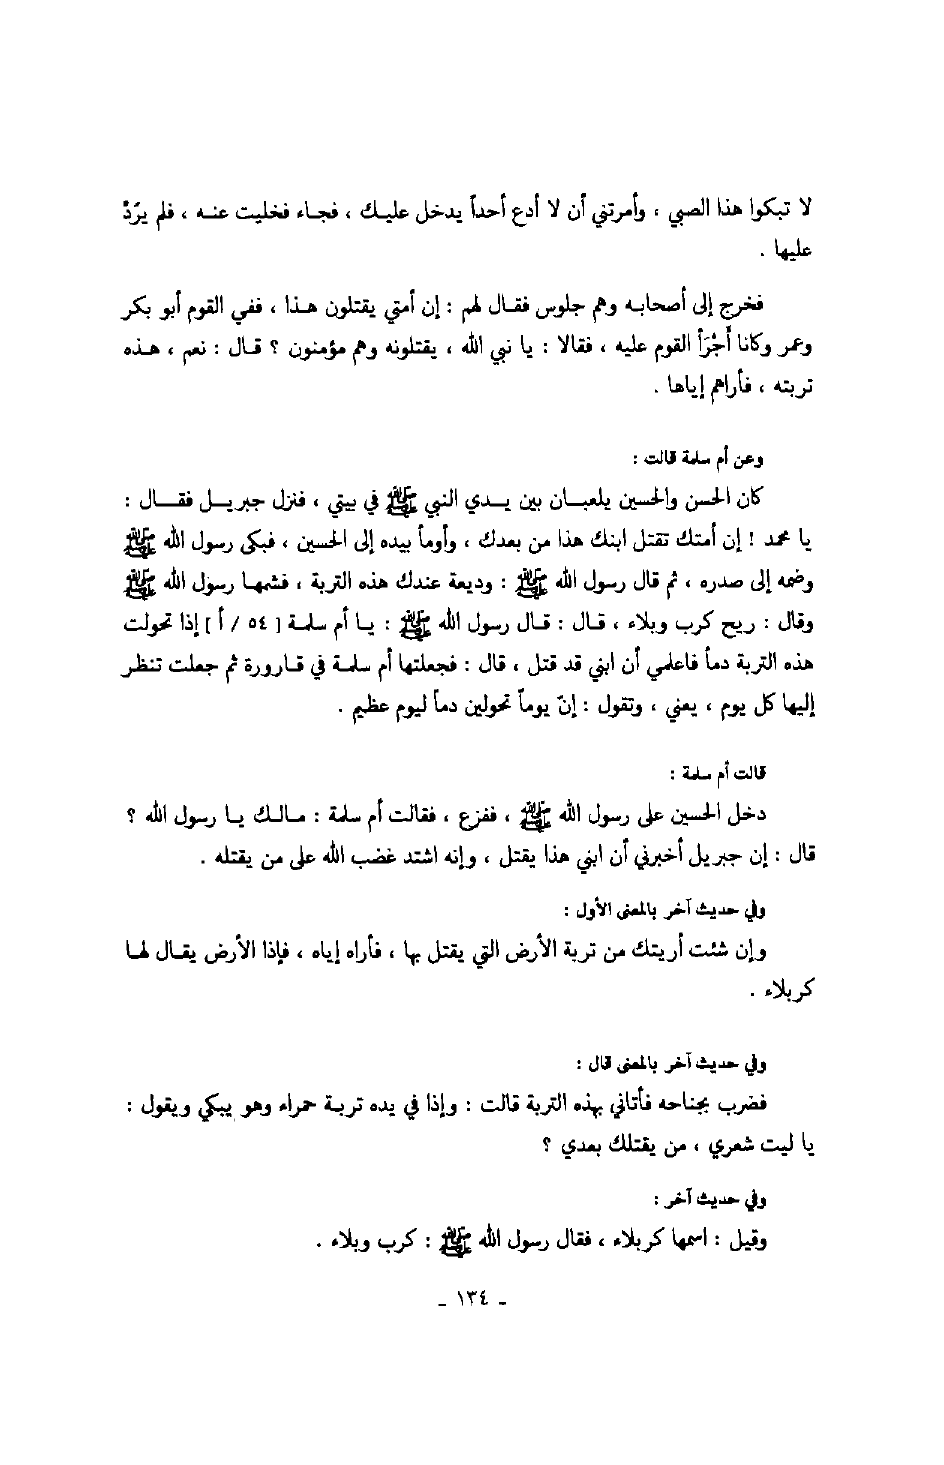 لا تبكوا هذا الصبي ، وأمرتني أن لا أدع أحداً يدخل عليك ، فجاء فخليت عنه ، فلم يرّدّ
عليها .
فخرج إلى أصحابه وهم جلوس فقال لهم : إن أمتي يقتلون هذا ، ففي القوم أبو بكر
وعمر وكانا أَجْرَأَ القوم عليه ، فقالا : يا نبي الله ، يقتلونه وهم مؤمنون ؟ قال : نعم ، هذه
تربته ، فأراهم إياها .
وعن أم سلمة قالت :
كان الحسن والحسين يلعبان بين يدي النبي ﷺ في بيتي ، فنزل جبريل فقال :
يا محمد ! إن أمتك تقتل ابنك هذا من بعدك ، وأومأ بيده إلى الحسين ، فبكى رسول الله ﷺ
وضمه إلى صدره ، ثم قال رسول الله ﷺ : وديعة عندك هذه التربة ، فشمها رسول الله ﷺ
وقال : ريح كرب وبلاء ، قال : قال رسول الله ﷺ : يا أم سلمة [ ٥٤ / أ ] إذا تحولت
هذه التربة دماً فاعلمي أن ابني قد قتل ، قال : فجعلتها أم سلمة في قارورة ثم جعلت تنظر
إليها كل يوم ، يعني ، وتقول : إنّ يوماً تحولين دماً ليوم عظيم .
قالت أم سلمة :
دخل الحسين على رسول الله ﷺ ، ففزع ، فقالت أم سلمة : مالك يا رسول الله ؟
قال : إن جبريل أخبرني أن ابني هذا يقتل ، وإنه اشتد غضب الله على من يقتله .
وفي حديث آخر بالمعنى الأول :
وإن شئت أريتك من تربة الأرض التي يقتل بها ، فأراه إياه ، فإذا الأرض يقال لها
كربلاء .
وفي حديث آخر بالمعنى قال :
فضرب بجناحه فأتاني بهذه التربة قالت : وإذا في يده تربة حمراء وهو يبكي ويقول :
يا ليت شعري ، من يقتلك بعدي ؟
وفي حديث آخر :
وقيل : اسمها كربلاء ، فقال رسول الله ﷺ : كرب وبلاء .
- ١٣٤ -